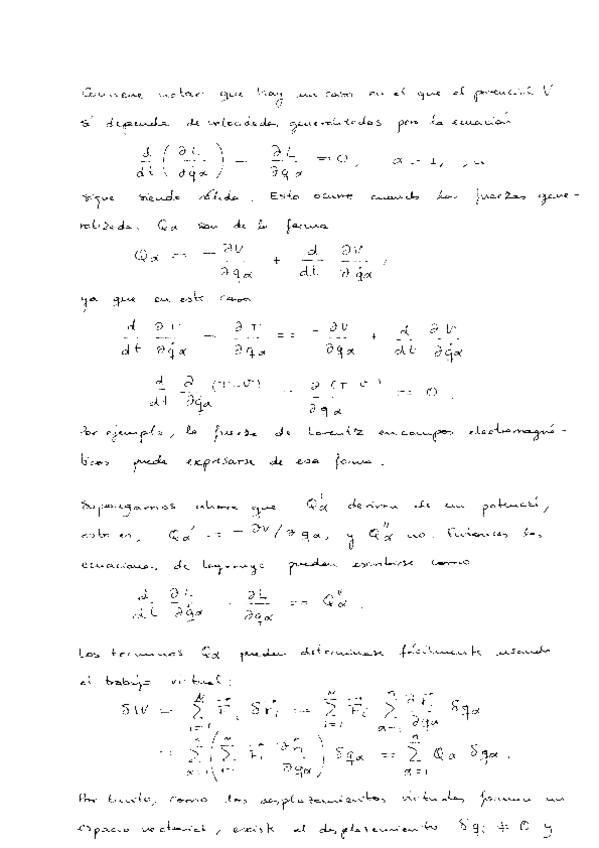 Conviene notar que hay un caso en el que el potencial V
sí depende de velocidades generalizadas pero la ecuación
d/dt (∂L/∂q̇α) − ∂L/∂qα = 0, α = 1, , n
sigue siendo válida. Esto ocurre cuando las fuerzas gene-
ralizadas Qα son de la forma
Qα = − ∂V/∂qα + d/dt ∂V/∂q̇α,
ya que en este caso
d/dt ∂T/∂q̇α − ∂T/∂qα = − ∂V/∂qα + d/dt ∂V/∂q̇α
d/dt ∂/∂q̇α (T−V) − ∂(T−V)/∂qα = 0.
Por ejemplo, la fuerza de Lorentz en campos electromagné-
ticos puede expresarse de esa forma.
Supongamos ahora que Q'α derivan de un potencial,
esto es, Qα' = − ∂V/∂qα, y Q''α no. Entonces las
ecuaciones de Lagrange pueden escribirse como
d/dt ∂L/∂q̇α − ∂L/∂qα = Q''α.
Los terminos Qα pueden determinarse fácilmente usando
el trabajo virtual:
δW = ∑_{i=1}^{N} F⃗i δr⃗i = ∑_{i=1}^{N} F⃗i ∑_{α=1}^{n} ∂r⃗i/∂qα δqα
= ∑_{α=1}^{n} (∑_{i=1}^{N} F⃗i ∂r⃗i/∂qα) δqα = ∑_{α=1}^{n} Qα δqα.
Por tanto, como los desplazamientos virtuales forman un
espacio vectorial, existe el desplazamiento δqi ≠ 0 y